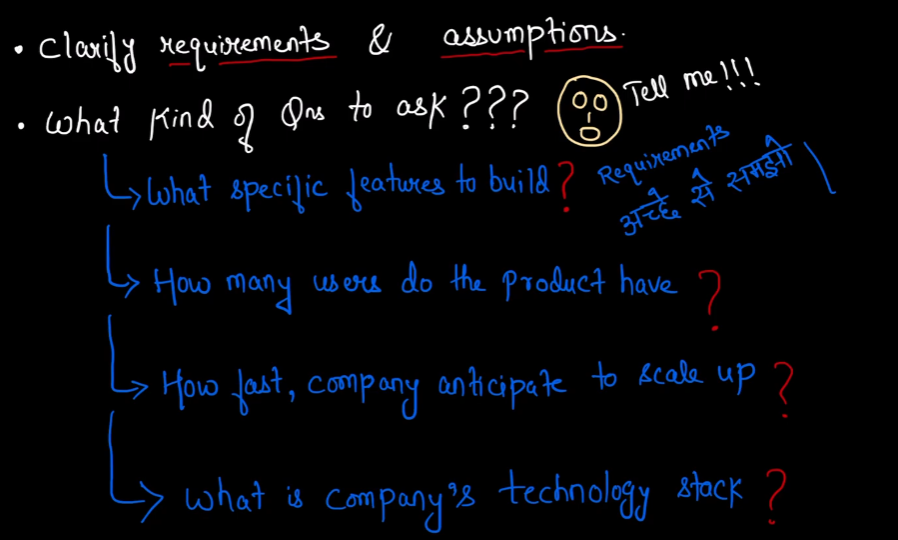 • Clarify requirements & assumptions.
• What kind of Qns to ask???
Tell me!!!
What specific features to build?
Requirements
अच्छे से समझो
How many users do the product have?
How fast, company anticipate to scale up?
What is company's technology stack?